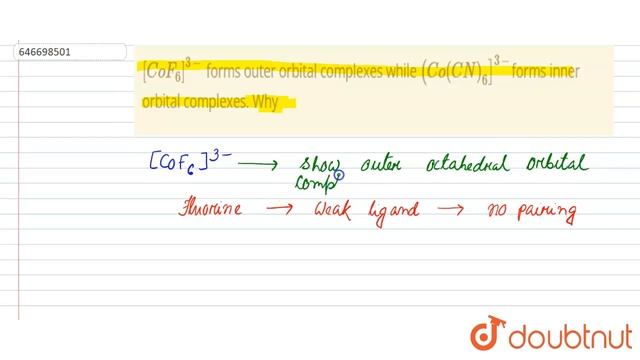 646698501
[CoF₆]³⁻ forms outer orbital complexes while (Co(CN)₆]³⁻ forms inner
orbital complexes. Why
[CoF₆]³⁻ → show outer octahedral orbital
comp
Fluorine → Weak ligand → no pairing
doubtnut